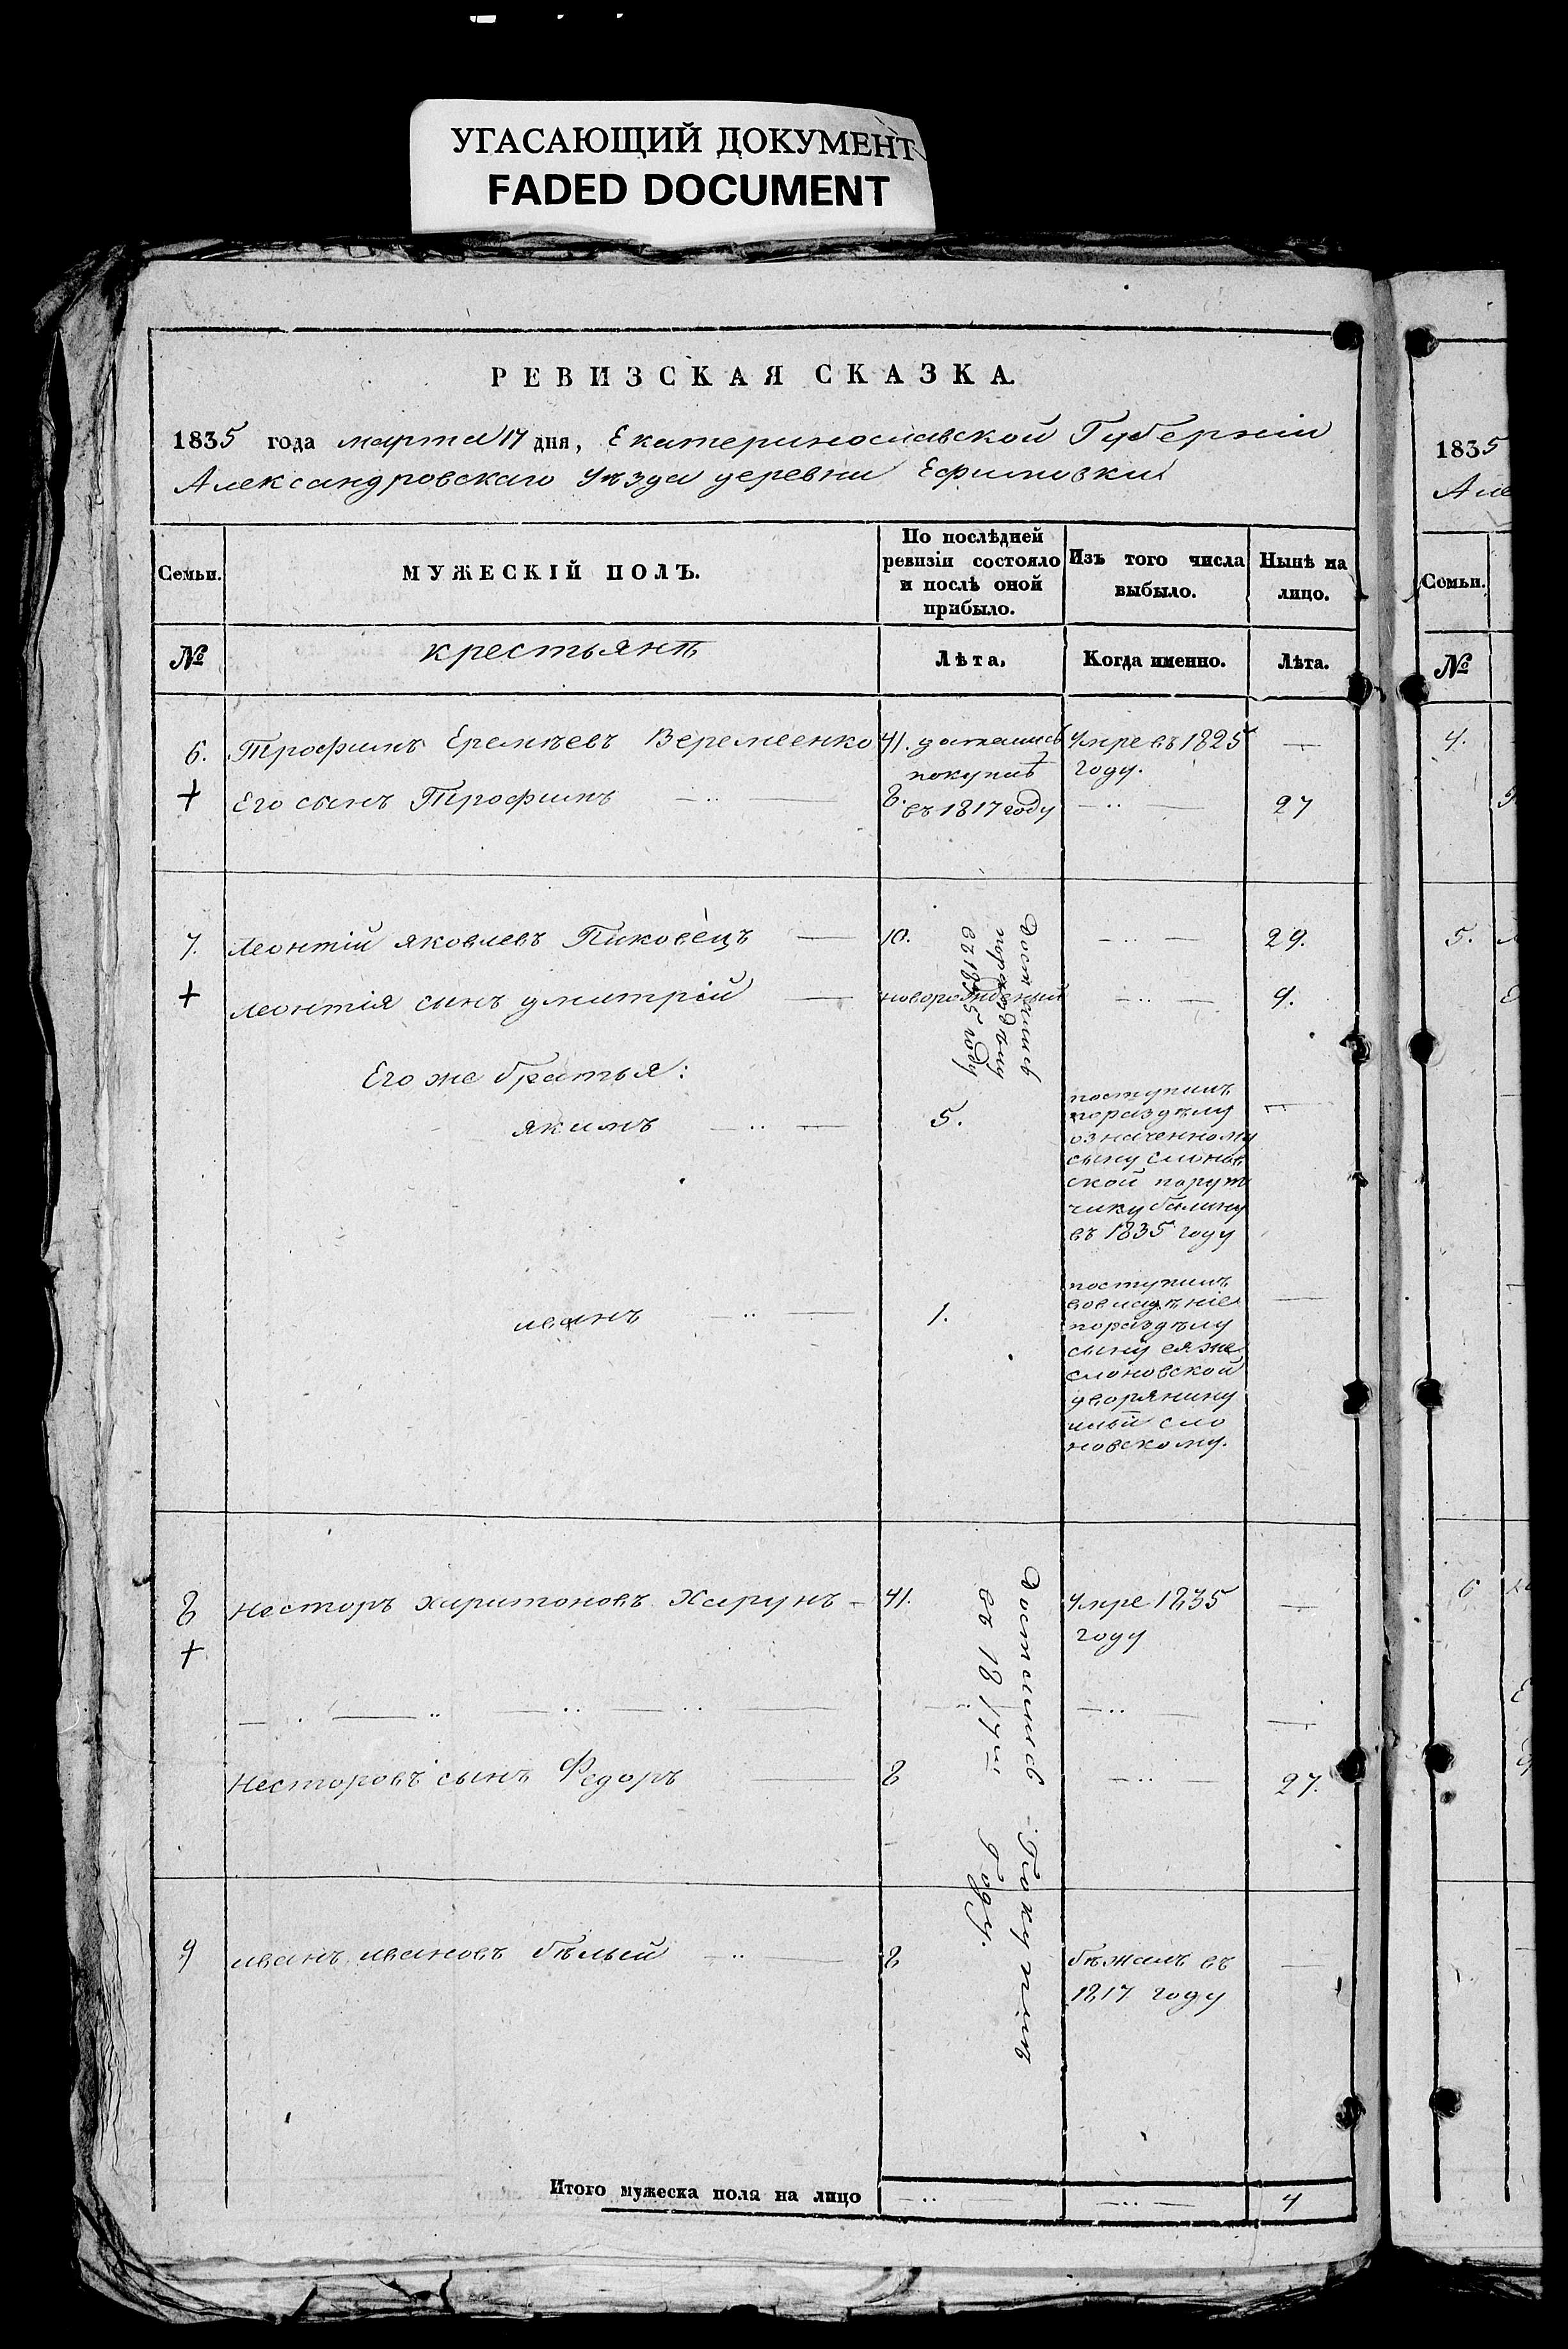 УГАСАЮЩИЙ ДОКУМЕНТ
FADED DOCUMENT
РЕВИЗСКАЯ СКАЗКА.
1835 года марта 17 дня, Екатеринославской Губерніи
Александровскаго уѣзда деревни Ефимовки
Семьи. МУЖЕСКІЙ ПОЛЪ. По послѣдней ревизіи состояло и послѣ оной прибыло. Изъ того числа выбыло. Нынѣ на лицо.
№ крестьянъ Лѣта. Когда именно. Лѣта.
6. Трофимъ Еремѣевъ Веремеенко 41. достались Умре въ 1825 —
покупкѣ году.
+ Его сынъ Трофимъ 8. въ 1817 году 27
7. Леонтій яковлевъ Пиковецъ 10. 29.
Достались
поразделу
въ 1835 году
+ Леонтія сынъ дмитрій новорожденый 9.
Его же братья:
якимъ 5. поступилъ
поразделу
означенному
сыну слонов
ской порут
чику балину
въ 1835 году
иванъ 1. поступилъ
вовладѣніе
поразделу
сыну ея же
слоновской
дворянину
ильи сло
новскому.
8 Несторъ харитоновъ Харунъ 41. Умре 1835 —
+ году
Достались Покупкѣ
въ 1817м Году.
Несторовъ сынъ Федоръ 8 27.
9 иванъ ивановъ бѣлый 8 бѣжалъ въ —
1817 году
Итого мужеска пола на лицо 4
1835
Але
Семьи.
№
4.
5.
6